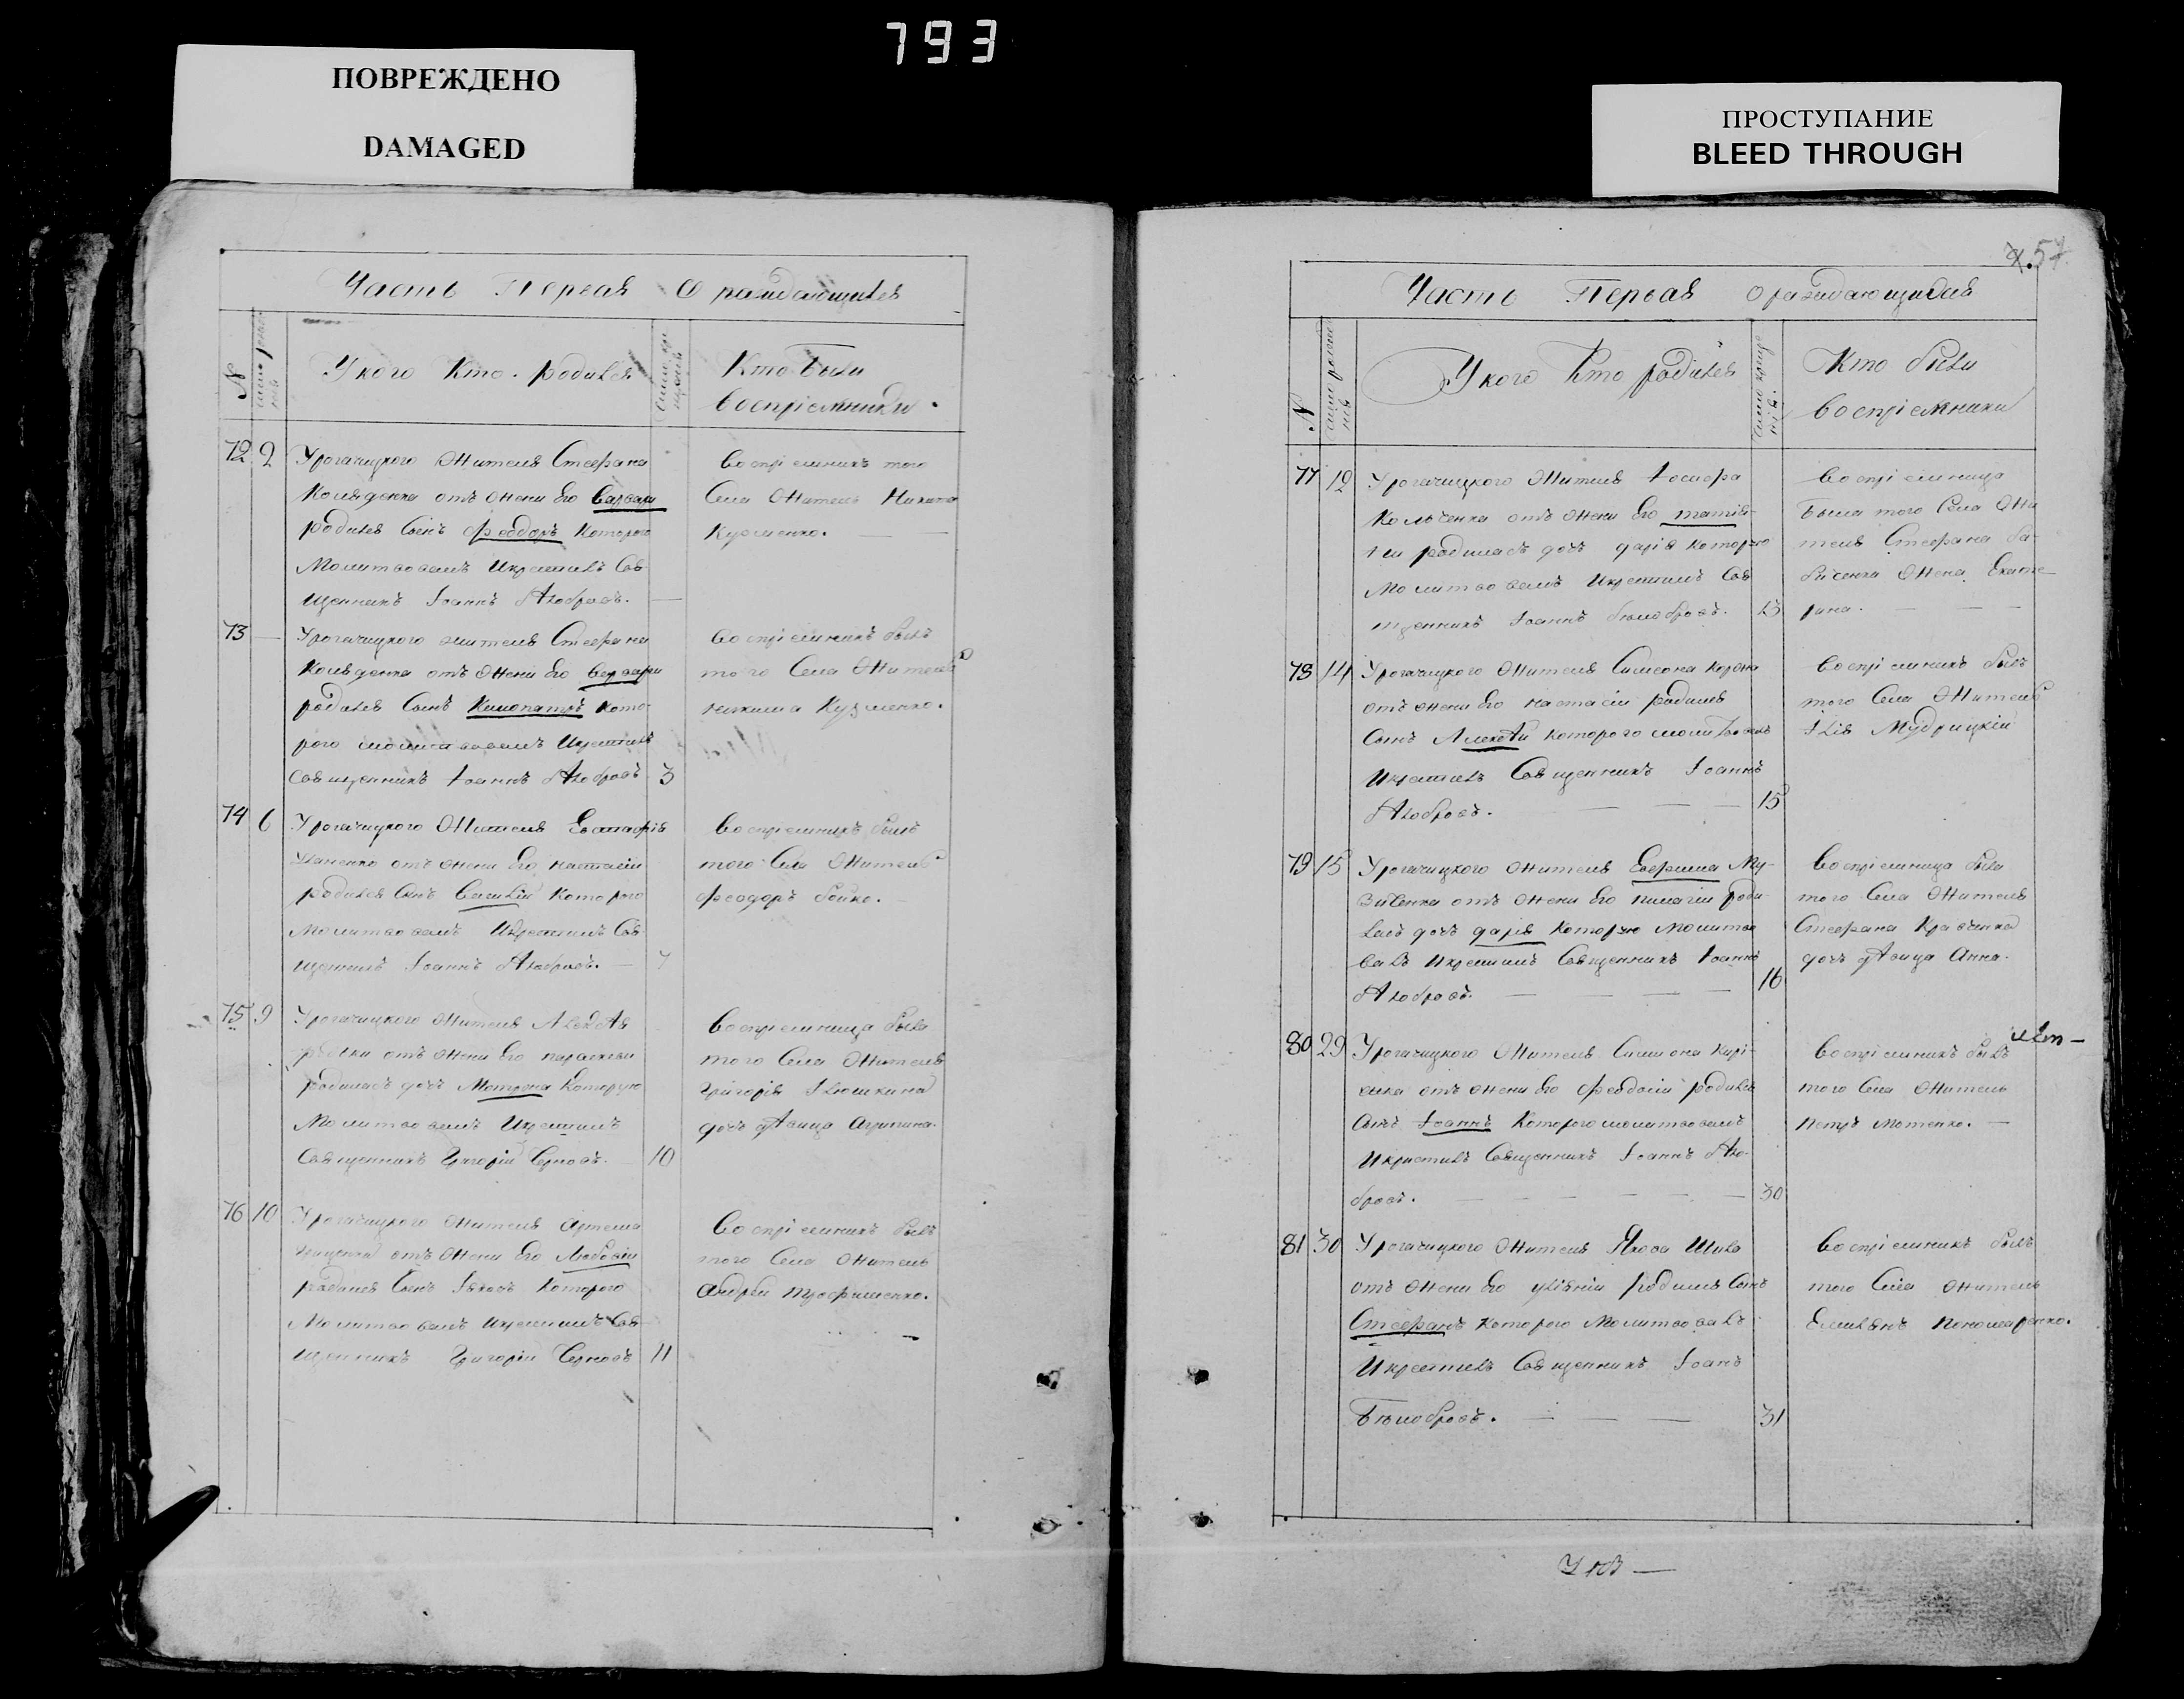 793
ПОВРЕЖДЕНО
DAMAGED
ПРОСТУПАНИЕ
BLEED THROUGH
Часть Первая О раждающихся
N
У кого Кто родился
Кто были
воспріемники.
72 2 Урогачицкого Жителя Стефана
Коляденка отъ жени Его Варвари
родился Синъ Феодоръ Которого
Молитвовалъ Икрестилъ Свя-
щенникъ Іоаннъ Бѣлобровъ.
воспріемникъ того
Села Житель Никита
Кузменко.
73 Урогачицкого жителя Стефана
Коляденка отъ жени Его варвари
родился Сынъ Клеопатръ Кото-
рого молитвовалъ Икрестилъ
Священникъ Іоаннъ Бѣлобровъ 3
воспріемникъ былъ
того Села Житель
Кузменко.
74 6 Урогачицкого Жителя Евстафія
отъ жени Его настасіи
родился Синъ Василій Которого
Молитвовалъ Икрестилъ Свя-
щенникъ Іоаннъ Бѣлобровъ. 7
воспріемникъ былъ
того Села Житель
Феодоръ Бойко.
75 9 Урогачицкого Жителя Алексѣя
отъ жени Его параскеви
родиласъ дочъ Мотрона Которую
Молитвовалъ Икрестилъ
Священникъ Григорій Серновъ. 10
воспріемница была
того Села Жителя
Григорія Илюшкина
дочъ дѣвица Агрипина.
76 10 Урогачицкого Жителя Артема
Гриценка отъ жени Его Феодосіи
родился Синъ Іяковъ Которого
Молитвовалъ Икрестилъ Свя-
щенникъ Григорій Серновъ 11
воспріемникъ былъ
того Села Житель
Андрѣй Трофименко.
57
Часть Первая О раждающихся
N
У кого Кто родился
Кто были
воспріемники
77 12 Урогачицкого Жителя Іосифа
отъ жени Его татія-
ни родиласъ дочъ дарія которую
Молитвовалъ Икрестилъ Свя
щенникъ Іоаннъ Бѣлобровъ. 13
воспріемница
Была того Села Жи
теля Стефана Ба-
Жена Екате-
рина.
78 14 Урогачицкого Жителя Симеона
отъ жени Его настасіи родился
Сынъ Алексѣй которого молитвовалъ
Икрестилъ Священникъ Іоаннъ
Бѣлобровъ. 15
воспріемникъ былъ
того Села Житель
Ілія Мудрицкій
79 15 Урогачицкого жителя Евфима Му-
зиченка отъ жени Его пилагіи роди-
ласъ дочъ дарія Которую Молитво
валъ Икрестилъ Священникъ Іоаннъ
Бѣлобровъ. 16
воспріемница была
того Села Жителя
Стефана Кравченка
дочъ дѣвица Анна.
80 29 Урогачицкого Жителя Симиона Кирі-
енка отъ жени Его Феодосіи родился
Синъ Іоаннъ Которого молитвовалъ
Икристилъ Священникъ Іоаннъ Бѣло-
бровъ. 30
воспріемникъ былъ
того Села Житель
Петръ Мотенко.
81 30 Урогачицкого Жителя Якова Шила
отъ жени Его уліяніи родился Синъ
Стефанъ Которого Молитвовалъ
Икрестилъ Священникъ Іоанъ
Бѣлобровъ. 31
воспріемникъ былъ
того Села житель
Емиліянъ Пономаренко.